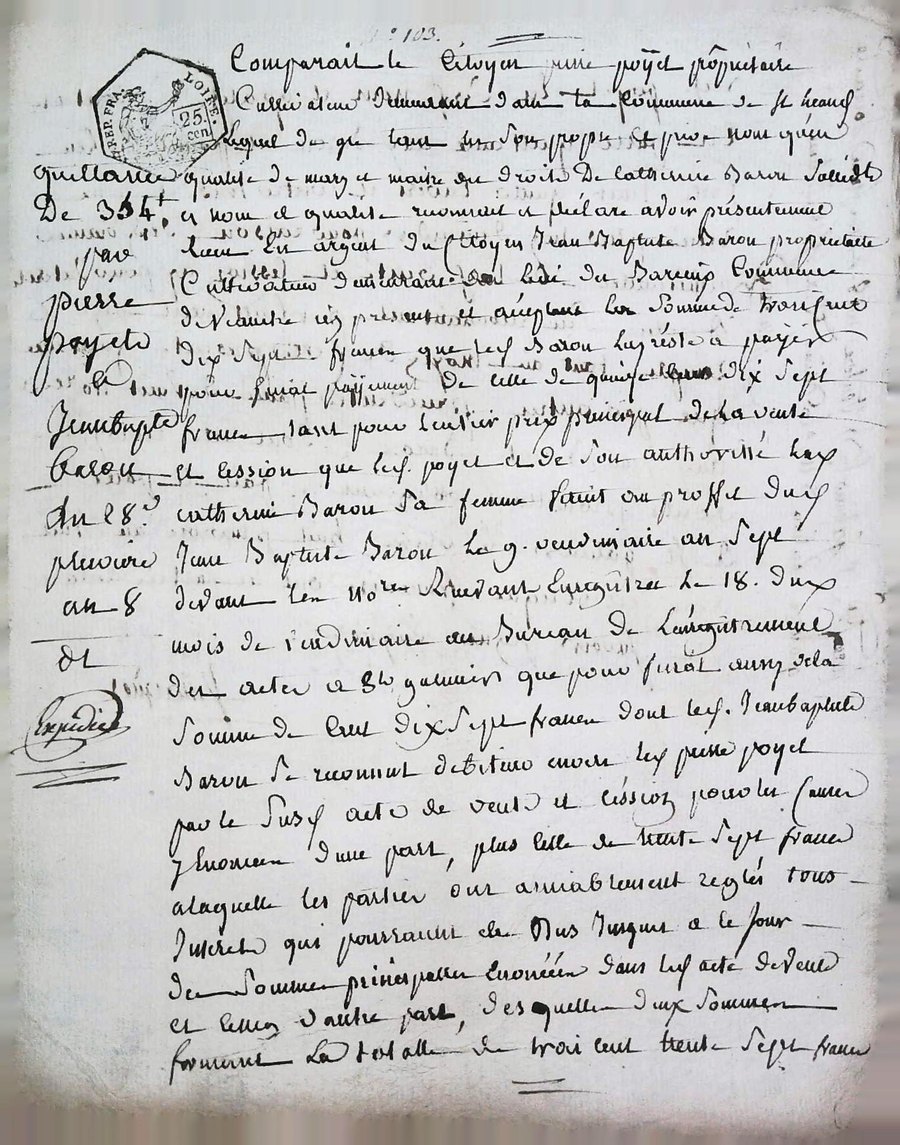 N° 103.
REP. FRA.
LOIRE.
25 cen
quittance
De 354tt.
par
pierre
poyet
et
Jean bapte
baron
du 28e
pluviose
an 8
dt
Expedié
Comparait le Citoyen pierre poyet propriétaire
Cultivateur demeurant dans la Commune de St
Lequel de gre tant en son propre et privé nom qu'en
qualité de mary et maitre des droits De Catherine Baron
et nom et qualité reconnait et déclare avoir présentement
Recu En argent du Citoyen Jean Baptiste Baron propriétaire
Cultivateur demeurant au Lieu du Commune
de icy présent et acceptant La Somme de trois Cent
dix Sept francs que led Baron luy reste a payer
pour final payement de celle de quinze Cent dix Sept
francs tant pour l'entier prix principal de la vente
et cession que led. poyet et de Son authorité lad
catherine Baron Sa femme firent au proffit dud
Jean Baptiste Baron Le 9. vendemiaire an Sept
devant les nore Recevant Enregistrée Le 18. dud
mois de vendemiaire au Bureau de L'enregistrement
des actes a St galmier que pour final aussy de la
Somme de Cent dix Sept francs dont led. Jean baptiste
Baron Se reconnut debiteur envers led pierre poyet
par le Susd acte de vente et cession pour les Causes
y Enoncees d'une part, plus celle de trente Sept francs
a laquelle les parties ont amiablement reglés tous
Interets qui pourraient etre Dus Jusques a ce Jour
des Sommes principalles Enoncées dans led acte de vente
et cession d'autre part, desquelles deux Sommes
formant La totalle de trois cent trente Sept francs